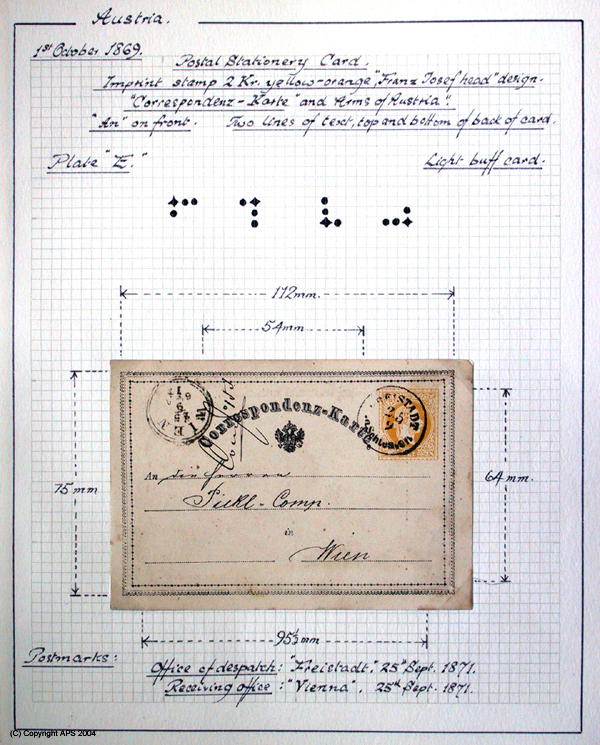 Austria.
1st October 1869.
Postal Stationery Card.
Imprint stamp 2 Kr. yellow-orange, "Franz Josef head" design.
"Correspondenz-Karte" and Arms of Austria".
"An" on front. Two lines of text, top and bottom of back of card.
Plate "E."
Light buff card.
112mm.
54mm
WIEN
Correspondenz-Karte.
FREISTADT
25
9
75mm
64mm.
An die Herren
Pickl-Comp.
in
Wien
95½mm
Postmarks:
Office of despatch: "Freistadt", 25th Sept. 1871.
Receiving office: "Vienna", 25th Sept. 1871.
(C) Copyright APS 2004